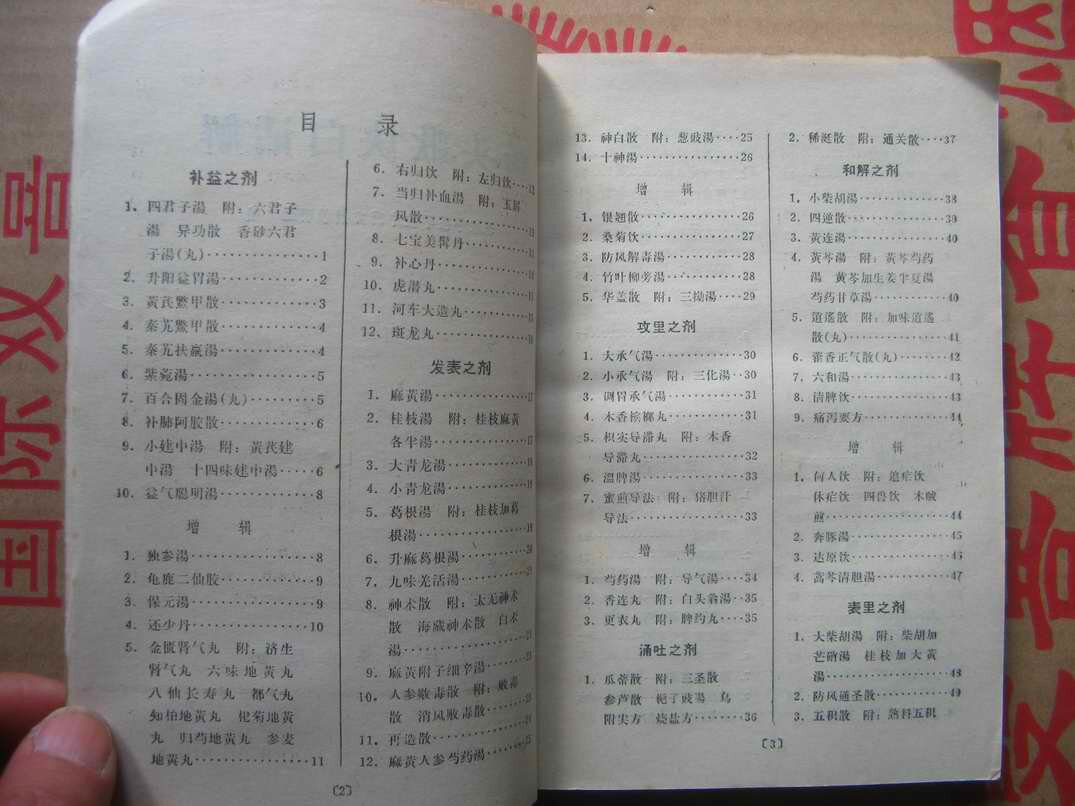 目 录
补益之剂
1. 四君子湯 附：六君子
湯 异功散 香砂六君
子湯(丸)…………1
2. 升阳益胃湯…………2
3. 黃芪鱉甲散…………4
4. 秦艽鱉甲散…………4
5. 秦艽扶羸湯…………4
6. 紫菀湯…………5
7. 百合固金湯(丸)…………5
8. 补肺阿胶散…………6
9. 小建中湯 附：黃芪建
中湯 十四味建中湯……6
10. 益气聪明湯…………8
增 辑
1. 独参湯…………8
2. 龟鹿二仙胶…………9
3. 保元湯…………9
4. 还少丹…………10
5. 金匱肾气丸 附：济生
肾气丸 六味地黃丸
八仙长寿丸 都气丸
知柏地黃丸 杞菊地黃
丸 归芍地黃丸 参麦
地黃丸…………11
6. 右归饮 附：左归饮……
7. 当归补血湯 附：玉屏
风散…………
8. 七宝美髯丹…………
9. 补心丹…………
10. 虎潜丸…………
11. 河车大造丸…………
12. 斑龙丸…………
发表之剂
1. 麻黃湯…………17
2. 桂枝湯 附：桂枝麻黃
各半湯…………
3. 大青龙湯…………
4. 小青龙湯…………
5. 葛根湯 附：桂枝加葛
根湯…………
6. 升麻葛根湯…………
7. 九味羌活湯…………
8. 神术散 附：太无神术
散 海藏神术散 白术
湯…………
9. 麻黃附子细辛湯…………
10. 人参败毒散 附：败毒
散 消风败毒散…………
11. 再造散…………
12. 麻黃人参芍药湯…………
〔2〕
13. 神白散 附：葱豉湯……25
14. 十神湯…………26
增 辑
1. 银翘散…………26
2. 桑菊饮…………27
3. 防风解毒湯…………28
4. 竹叶柳蒡湯…………28
5. 华盖散 附：三拗湯……29
攻里之剂
1. 大承气湯…………30
2. 小承气湯 附：三化湯…30
3. 调胃承气湯…………31
4. 木香槟榔丸…………31
5. 枳实导滞丸 附：木香
导滞丸…………32
6. 溫脾湯…………33
7. 蜜煎导法 附：猪胆汁
导法…………33
增 辑
1. 芍药湯 附：导气湯……34
2. 香连丸 附：白头翁湯…35
3. 更衣丸 附：脾约丸……35
涌吐之剂
1. 瓜蒂散 附：三圣散
参芦散 栀子豉湯 乌
附尖方 烧盐方…………36
2. 稀涎散 附：通关散……37
和解之剂
1. 小柴胡湯…………38
2. 四逆散…………39
3. 黃连湯…………40
4. 黃芩湯 附：黃芩芍药
湯 黃芩加生姜半夏湯
芍药甘草湯…………40
5. 逍遙散 附：加味逍遙
散(丸)…………41
6. 藿香正气散(丸)…………42
7. 六和湯…………43
8. 清脾饮…………43
9. 痛泻要方…………44
增 辑
1. 何人饮 附：追疟饮
休疟饮 四兽饮 木贼
煎…………44
2. 奔豚湯…………45
3. 达原饮…………46
4. 蒿芩清胆湯…………47
表里之剂
1. 大柴胡湯 附：柴胡加
芒硝湯 桂枝加大黃
湯…………48
2. 防风通圣散…………49
3. 五积散 附：熟料五积
〔3〕
国际双喜